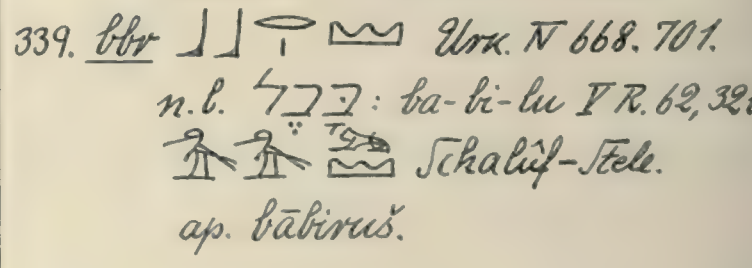 339. bbr 𓃀𓃀𓂋𓏤𓈉 Urk. IV 668. 701.
n.l. בָּבֶל : ba-bi-lu V R. 62, 32
𓅡𓅡𓃭𓈉 Schalûf-Stele.
ap. bābiruš.